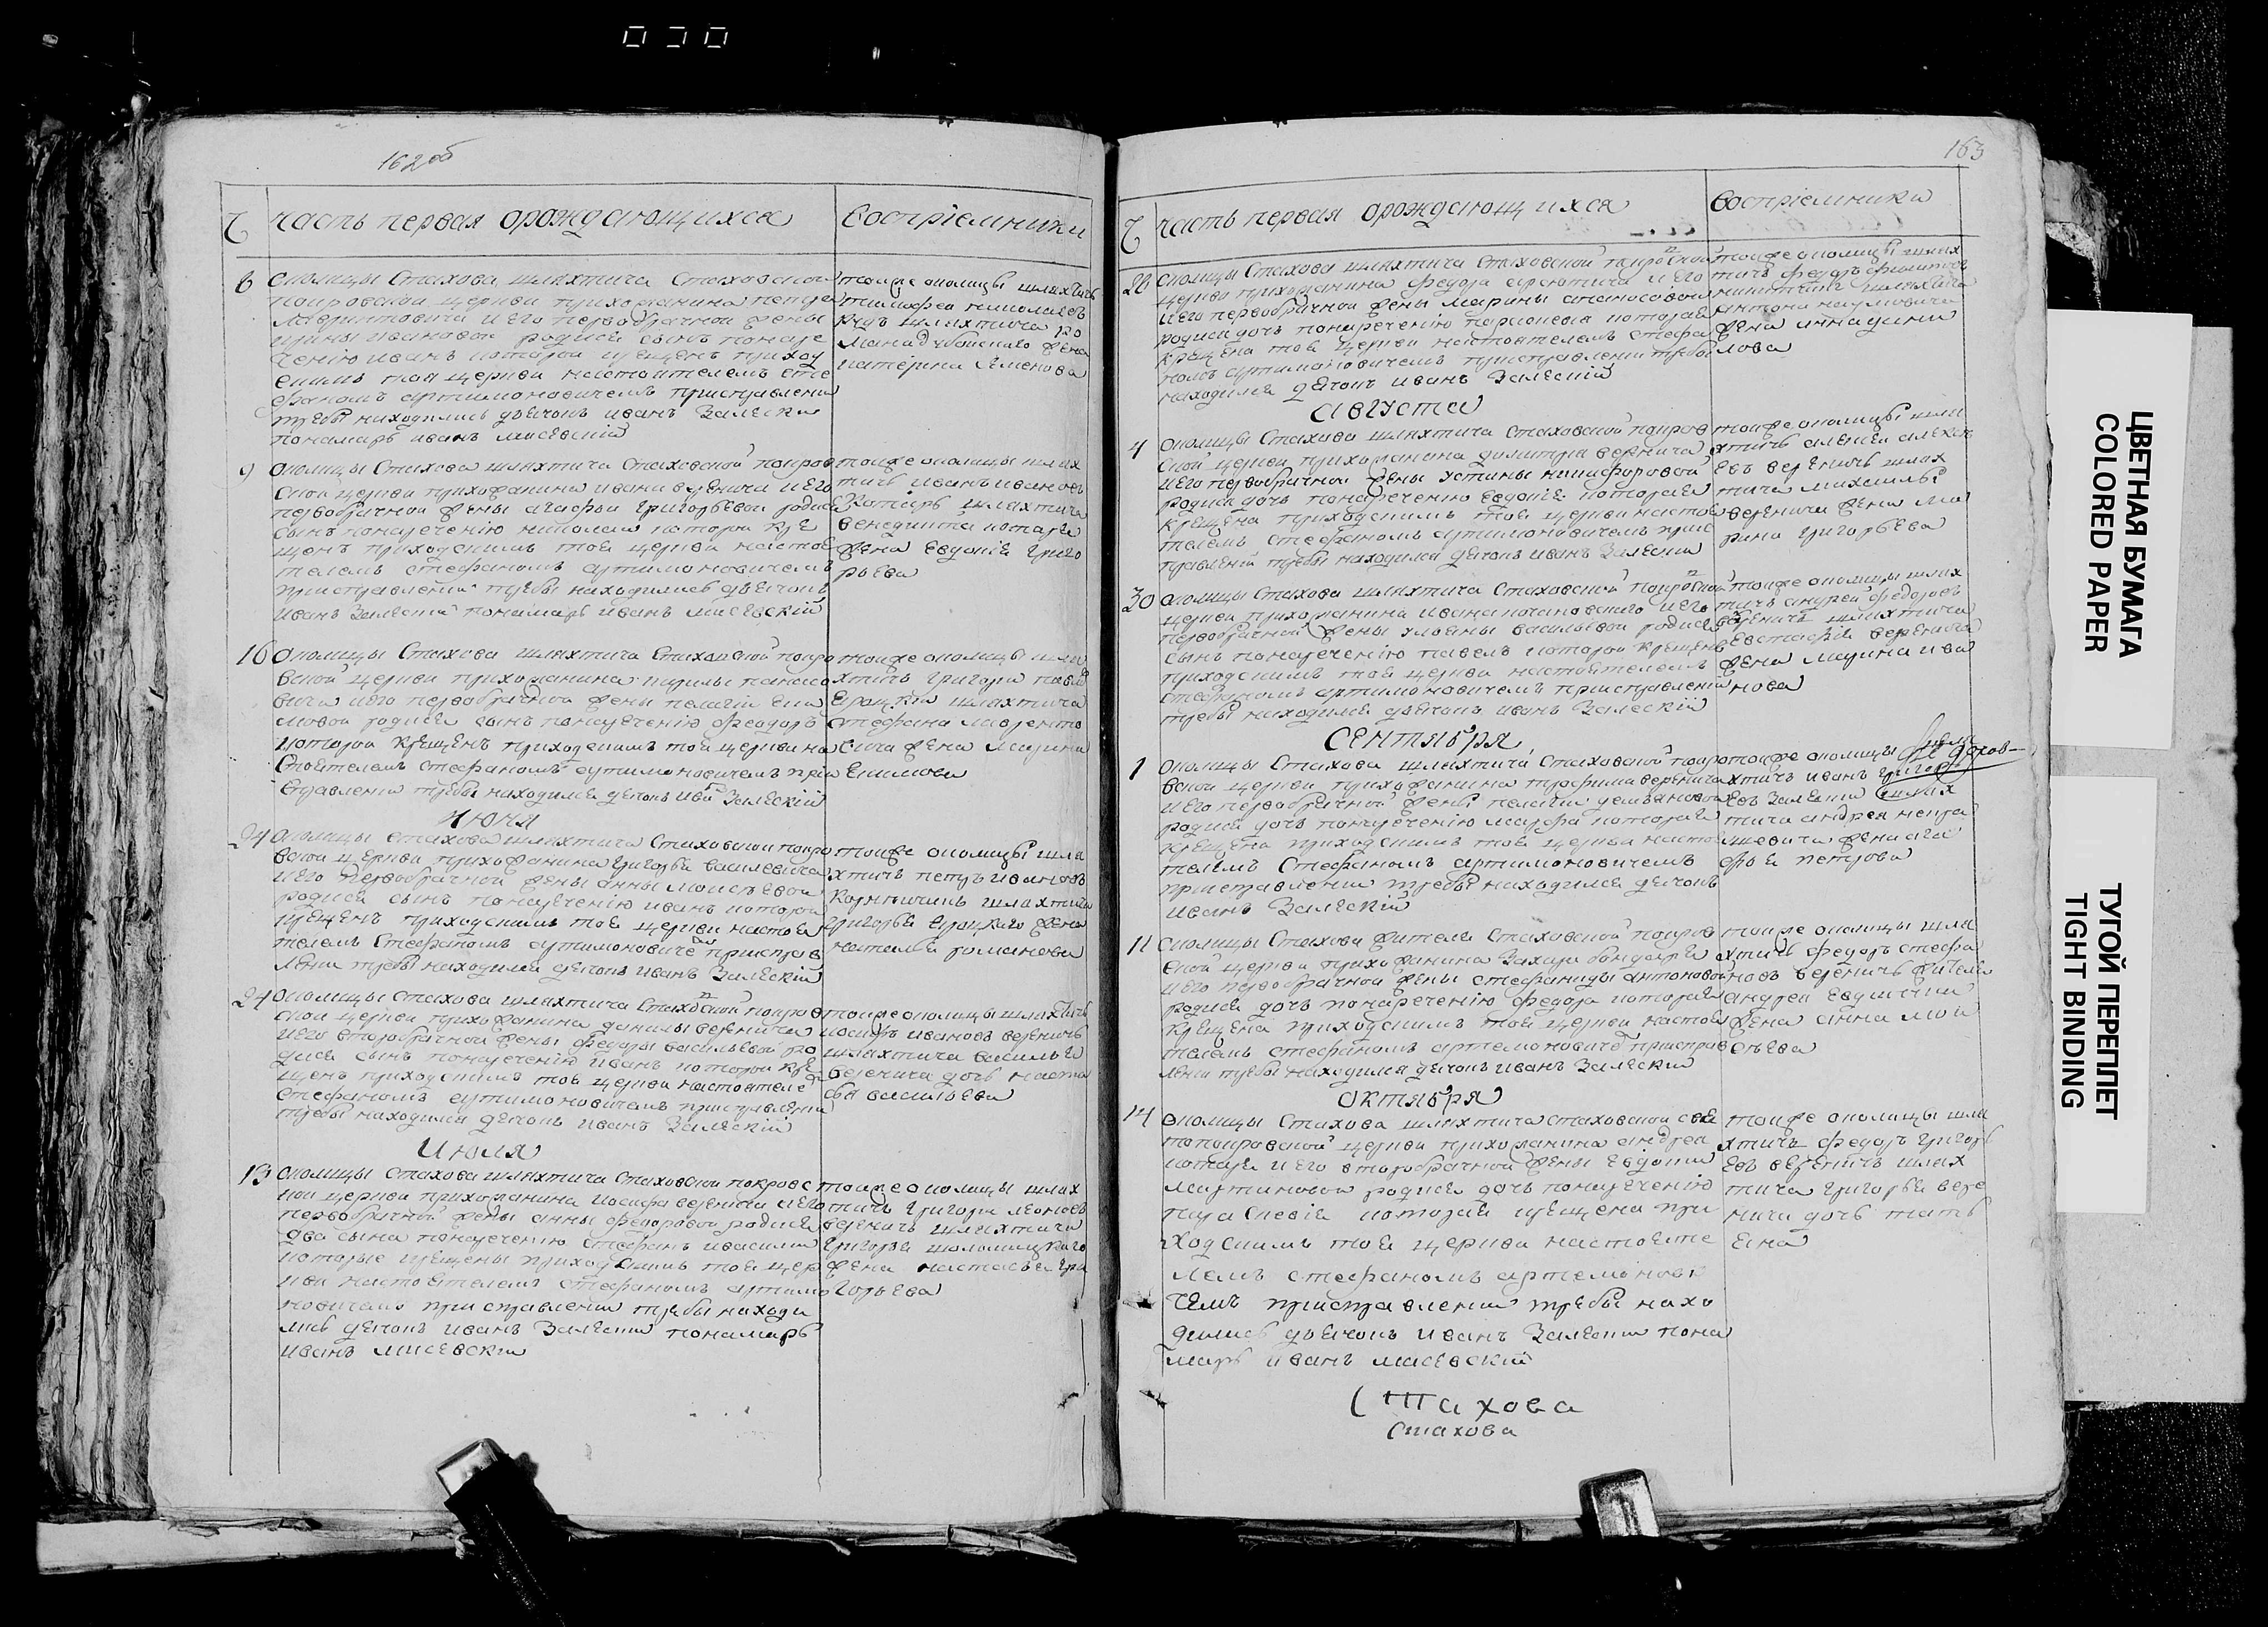 162об
Ч часть первая орождающихся
Воспріемники
6 околицы Стахова шляхтича Стаховской
покровской церкви прихожанина
и его первобрачной жены
ивановой родися сынъ понаре
ченію иванъ которой крещенъ приход
скимъ той церкви настоятелемъ сте
фаномъ артимоновичемъ приисправлении
требы находились дьячокъ иванъ Залескии
пономарь иванъ мисевскій
тоиже околицы шляхтичъ
жена
катерина Семенова
9 околицы Стахова шляхтича Стаховской покров
ской церкви прихожанина ивана веренича и его
первобрачной жены агафьи григорьевой родися
сынъ понареченію николаи которой кре
щенъ приходскимъ тоей церкви настоя
телемъ стефаномъ артимоновичемъ
приисправлении требы находились дьячокъ
иванъ Залескіи пономарь иванъ мисевскій
тоиже околицы шлях
тичъ иванъ ивановъ
Котаръ шляхтича
венедикта котаря
жена Евдокія григо
рьева
16 Околицы Стахова шляхтича Стаховской покро
вской церкви прихожанина
его первобрачной жены пелагіи
родися сынъ понареченію феодоръ
которой крещенъ приходскимъ тоей церкви на
стоятелемъ стефаномъ артимоновичемъ при
справлении требы находился дячокъ Залескій
тоиже околицы шля
хтичъ григори
шляхтича
стефана
жена марина
Екимова
Июня
24 Околицы стахова шляхтича Стаховской покро
вской церкви прихожанина григорья василевича
и его первобрачной жены анны моисеевой
родися сынъ понареченію иванъ которой
крещенъ приходскимъ тоей церкви настоя
телемъ Стефаномъ артимоновиче приисправ
лении требы находился дячокъ иванъ Залескій
тоиже околицы шля
хтичъ петръ ивановъ
шляхтича
григорья жена
наталья романова
24 Околицы стахова шляхтича Стаховской покров
ской церкви прихожанина данилы веренича
и его второбрачной жены федоры васильевой ро
дися сынъ понареченію иванъ которой кре
щенъ приходскимъ тоей церкви настоятеле
стефаномъ артимоновичемъ приисправлении
требы находился дячокъ иванъ Залескій
тоиже околицы шляхтичъ
иосифъ ивановъ вереничъ
шляхтича василья
веренича дочь наста
сья васильева
Июля
13 околицы стахова шляхтича стаховской покровс
кои церкви прихожанина иосифа веренича и его
первобрачной жены анны федоровой родися
два сына понареченію Стефанъ ивасилии
которые крещены приходскимъ тоей цер
кви настоятелемъ стефаномъ артимо
новичемъ приисправлении требы находи
лись дячокъ иванъ Залескии пономарь
иванъ мисевскіи
тоиже околицы шлях
тичъ григори
вереничъ шляхтича
григорья
жена настасья гри
горьева
163
Ч часть первая орождающихся
Воспріемники
околицы Стахова шляхтича Стаховской покровской
церкви прихожанина федора и его
первобрачной жены марины
родися дочь понареченію которая
крещена тоей церкви настоятелемъ стефа
номъ артимоновичемъ приисправлении требы
находился дячокъ иванъ Залескій
тоиже околицы шлях
тичъ федоръ
шляхтича
антона наумовича
жена
Августа
4 околицы Стахова шляхтича стаховской покров
ской церкви прихожанина димитрия веренича
и его первобрачной жены устины никифоровой
родися дочь понареченію Евдокія которая
крещена приходскимъ тоей церкви настоя
телемъ стефаномъ артимоновичемъ приис
правлении требы находился дячокъ иванъ Залескіи
тоиже околицы шля
хтичъ алексеи алексе
евъ вереничъ шлях
тича михаилы
веренича жена ма
рина григорьева
30 околицы Стахова шляхтича Стаховской покровской
церкви прихожанина ивана и его
первобрачной жены ульяны васильевой родися
сынъ понареченію павелъ которой крещенъ
приходскимъ тоей церкви настоятелемъ
стефаномъ артимоновичемъ приисправлении
требы находился дьячокъ иванъ Залескій
тоиже околицы шлях
тичъ андрей федоровъ
вереничъ шляхтича
Евстафія веренича
жена марина ива
нова
Сентября
1 околицы Стахова шляхтича Стаховской покро
вской церкви прихожанина трофима веренича
и его первобрачной жены пелагіи демьяновой
родися дочь понареченію марфа которая
крещена приходскимъ тоей церкви настоя
телемъ Стефаномъ артимоновичемъ
приисправлении требы находился дячокъ
иванъ Залескій
тоиже околицы
хтичъ иванъ
евъ Залескіи шлях
тича андрея
жена ага
фья петрова
11 околицы Стахова жителя Стаховской покров
ской церкви прихожанина Захара бондаря
и его первобрачной жены стефаниды антоновой
родися дочь понареченію федора которая
крещена приходскимъ тоей церкви настоя
телемъ стефаномъ артемоновиче приисправ
лении требы находился дячокъ иванъ Залескіи
тоиже околицы шля
хтичъ федоръ стефа
новъ вереничъ жителя
андрея
жена анна мои
сеева
октября
14 околицы Стахова шляхтича стаховской свя
топокровской церкви прихожанина андрея
котаря и его второбрачной жены Евдокии
мартиновой родися дочь понареченію
параскевія которая крещена при
ходскимъ тоей церкви настояте
лемъ стефаномъ артемонови
чемъ приисправлении требы нахо
дились дьячокъ иванъ Залескіи поно
марь иванъ мисевскій
тоиже околицы шля
хтичъ федоръ григорь
евъ вереничъ шлях
тича григорья вере
нича дочь тать
яна
Стахова
Стахова
ЦВЕТНАЯ БУМАГА
COLORED PAPER
ТУГОЙ ПЕРЕПЛЕТ
TIGHT BINDING